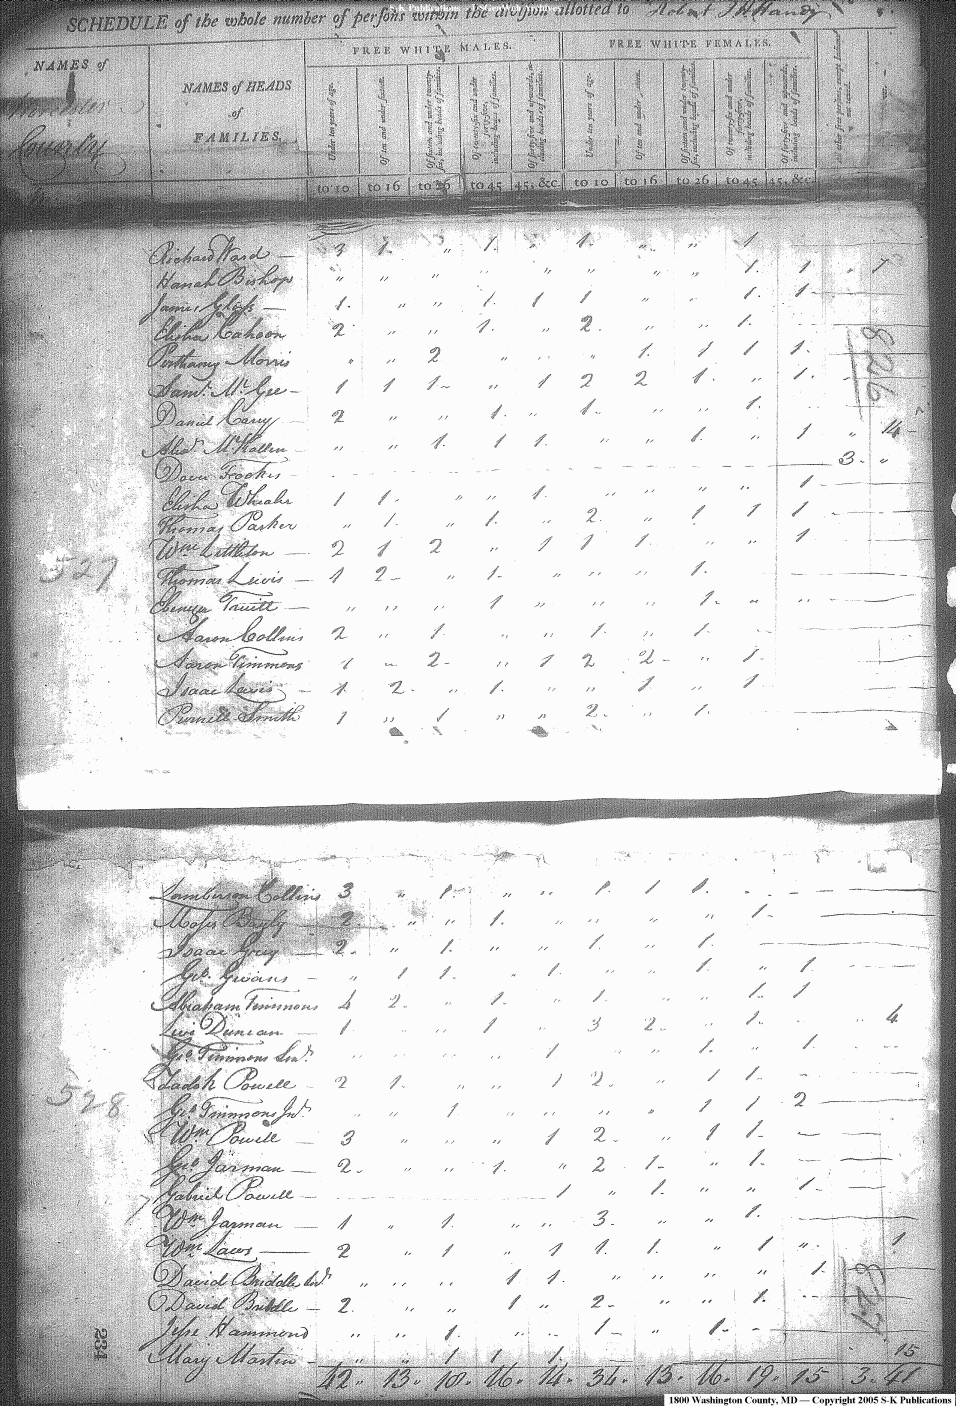 S-K Publications - UsGenWeb Archives
SCHEDULE of the whole number of persons within the division allotted to Robert J H Handy
NAMES of
Worcester
County
NAMES of HEADS
of
FAMILIES.
FREE WHITE MALES.
FREE WHITE FEMALES.
Under ten years of age.
Of ten and under sixteen.
Of sixteen and under twenty-six, including heads of families.
Of twenty-six and under forty-five, including heads of families.
Of forty-five and upwards, including heads of families.
Under ten years of age.
Of ten and under sixteen.
Of sixteen and under twenty-six, including heads of families.
Of twenty-six and under forty-five, including heads of families.
Of forty-five and upwards, including heads of families.
to 10 to 16 to 26 to 45 45, &c. to 10 to 16 to 26 to 45 45, &c.
Richard Ward — 3 1. " 1. " 1. " " 1
Hanah Bishop " " " " " " " " 1. 1 " 7
James Glass — 1. " " 1. 1 1 " " 1. 1
Elisha Cahoon 2 " " 1. " 2. " " 1.
Morris " " 2 " " " 1. 1 1 1.
826
Saml. McGee — 1 1 1 " 1 2 2 1. " 1.
Daniel Cary 2 " " 1. " 1. " " 1.
Alexr. McKallen " " 1. 1 1. " " 1. " 1 " 14
3 "
Elisha Whealer 1 1. " " 1. " " " " 1
Thomas Parker " 1. " 1. " 2. " 1 1 1
Wm Littleton — 2 1 2 " 1 1 1 " " 1
527
Thomas Lewis — 1 2 " 1. " " " 1.
Ebenezer Truitt — " " " 1 " " " 1. " "
Aaron Collins 2 " 1. " " 1. " 1.
Aaron Timmons 1 " 2 " 1 2 2 " 1.
Isaac Lewis — 1. 2. " 1. " " 1 " 1
Purnell Smith 1 " 1 " " 2. " 1.
Lamberson Collins 3 " 1. " " 1. 1 1.
Moses 2. " " 1. " " " " 1.
Isaac Gray — 2. " 1. " " 1. " 1.
Geo. Gwans — " 1 1. " 1. " " 1. " 1.
Abraham Timmons 4 2. " 1. " 1. " " 1. 1
Levi Duncan — 1. " " 1 " 3 2. " 1. " " 4
Geo Timmons Senr. " " " " 1 " " 1. " 1.
Zadok Powell — 2 1. " " 1 2. " 1 1.
528
Geo Timmons Jnr. " " 1 " " " " 1 1 2
Wm Powell — 3 " " " 1 2. " 1 1.
Geo Jarman — 2. " " 1. " 2 1. " 1.
Gabriel Powell — 1 " 1. " " 1.
Wm Jarman — 1 " 1. " " 3. " " 1.
Wm Laws — 2 " 1 " 1 1. 1. " 1 " 1
David Briddle Snr " " " 1 1. " " " " 1.
David Briddle — 2. " " 1 " 2. " " 1.
827
Jesse Hammond " " 1. " " 1 " 1.
Mary Martin — " " 1 1 1. 15
234
42. 13. 18. 16. 14. 34. 13. 16. 19. 15 3. 41
1800 Washington County, MD — Copyright 2005 S-K Publications